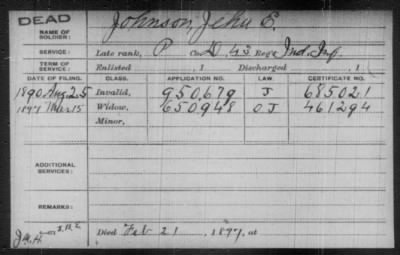 DEAD
NAME OF SOLDIER: Johnson, Jehu E.
SERVICE: Late rank, P Co. D, 43 Reg't Ind. Inf.
TERM OF SERVICE: Enlisted , 1 Discharged , 1
DATE OF FILING. CLASS. APPLICATION NO. LAW. CERTIFICATE NO.
1890 Aug. 25 Invalid, 950,679 J 685021
1897 Mar 15 Widow, 650,948 O J 461294
Minor,
ADDITIONAL SERVICES:
REMARKS:
Died Feb 21, 1897, at